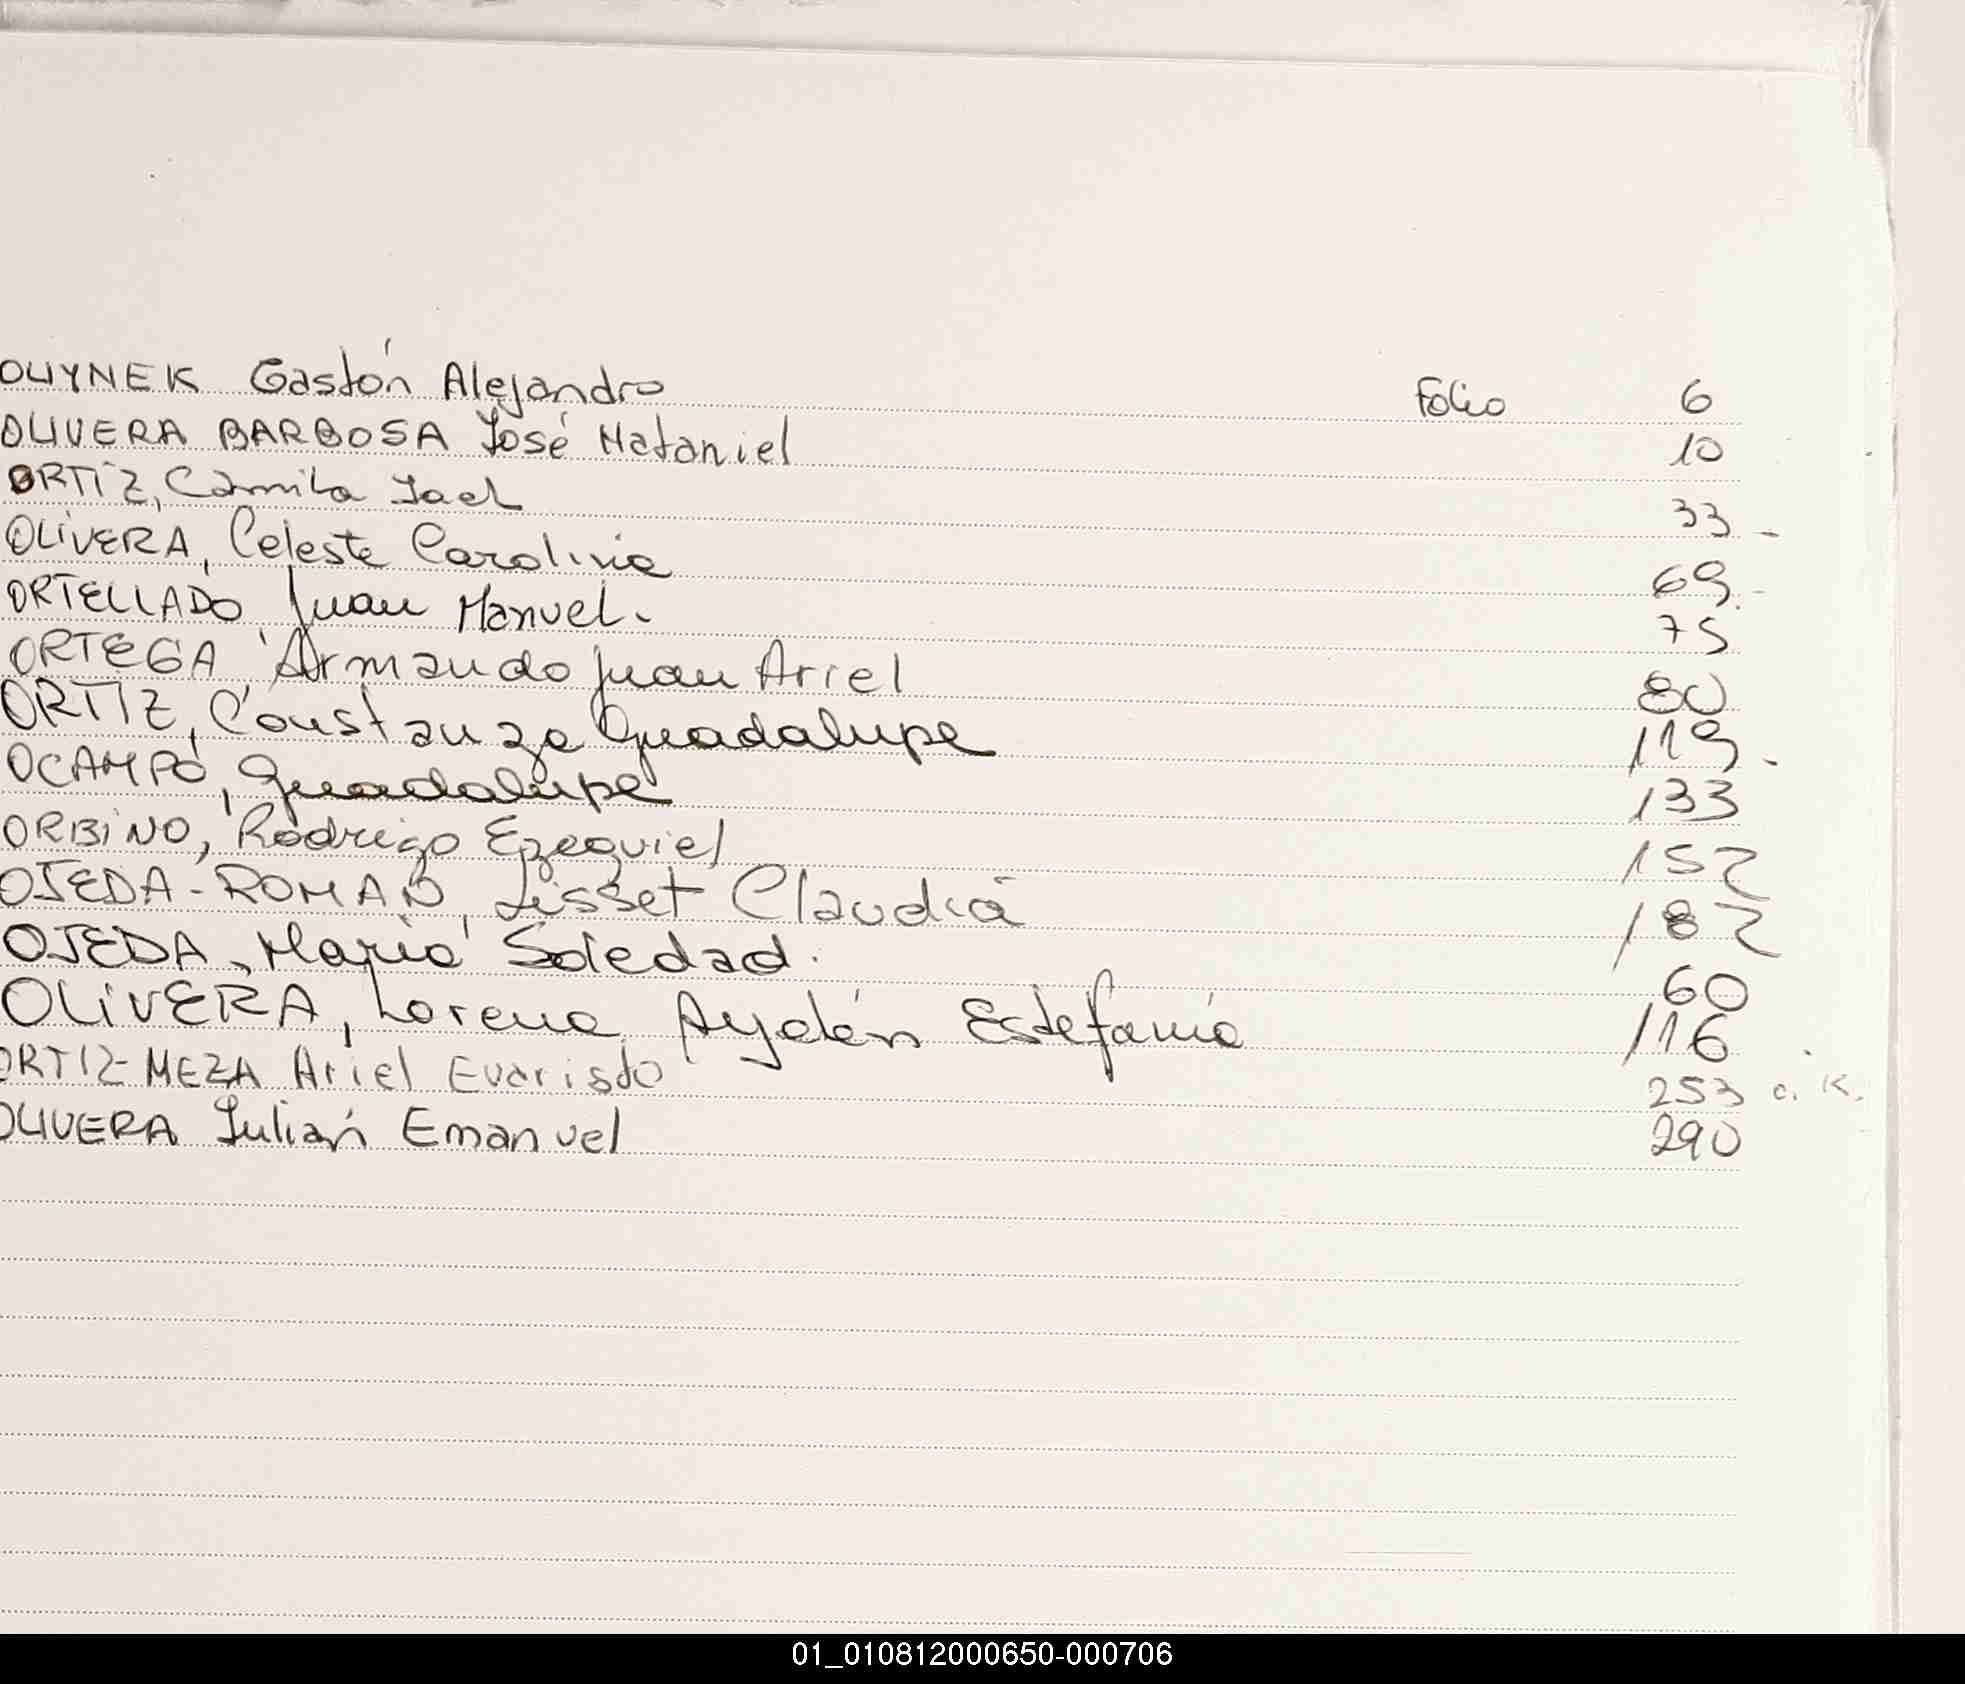 OLIYNEK Gastón Alejandro Folio 6
OLIVERA BARBOSA José Nataniel 10
ORTIZ, Camila Jael 33 -
OLIVERA, Celeste Carolina 69 -
ORTELLADO Juan Manuel. 75
ORTEGA, Armando Juan Ariel 80
ORTIZ, Constanza Guadalupe 119 -
OCAMPO, Guadalupe 133
ORBINO, Rodrigo Ezequiel 152
OJEDA-ROMAN, Lisset Claudia 182
OJEDA, María Soledad. 60
OLIVERA, Lorena Aydén Estefanía 116
ORTIZ-MEZA Ariel Evaristo 253 c. K.
OLIVERA Julián Emanuel 290
01_010812000650-000706